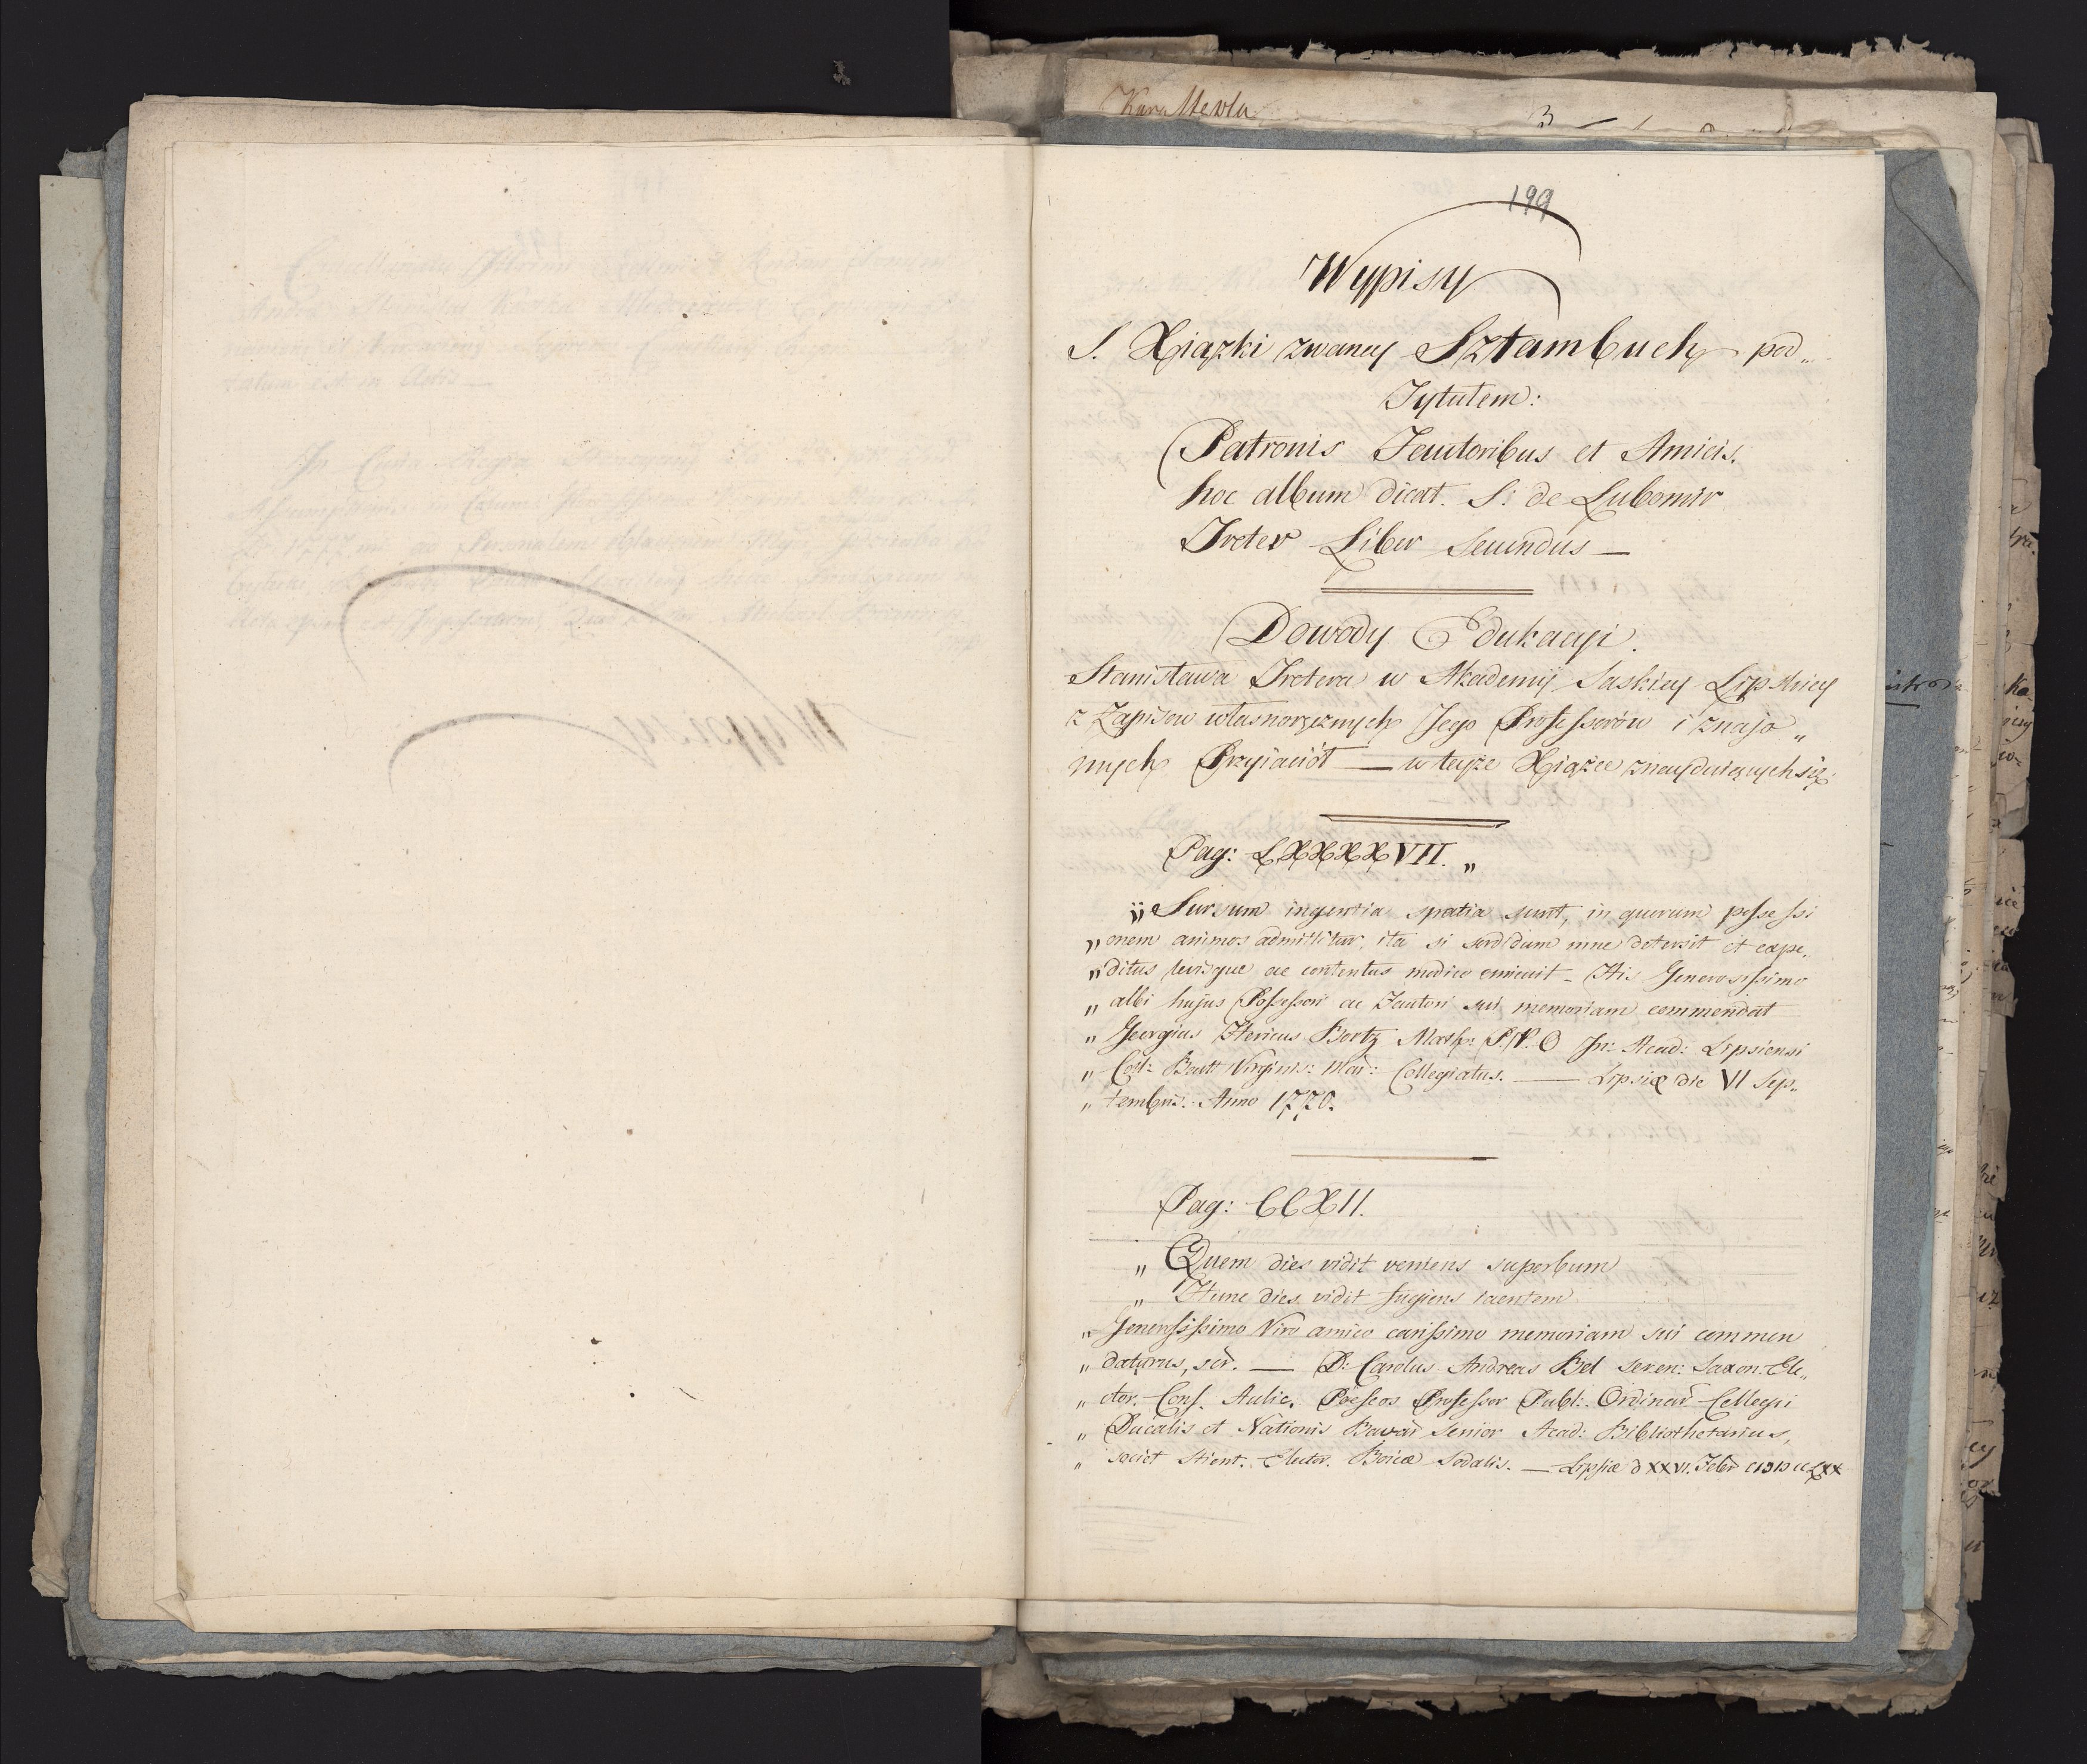 199
Wypisy
S. Xiązki zwaney Sztambuch pod„
Tytułem:
Patronis Fautoribus et Amicis.
hoc album dicat. S: de Lubomir
Treter Liber Secundus —
Dowody Edukacyi.
Stanisława Tretera w Akademij Saskiey Lipskiey
z Zapisow własnoręcznych Jego Professorów i znajo„
mych Przyiaciół — w teyże Xiążce znayduiących się.
Pag: LXXXXVII. „
„ Sursum ingentia spatia sunt, in quorum possessi
„ onem animos admittitur, ita si sordidum mne detersit et expe„
„ ditus levisque ac contentus modico emicuit — His Generosissimo
„ albi hujus Possessori ac Fautori sui memoriam commendat
„ Georgius Henricus Bortz Math: P. P. O In: Acad: Lipsiensi
„ Coll: Beatt Virginis: Mar: Collegiatus. — Lipsiæ die VI Sep„
„ tembris. Anno 1770.
Pag: CCXII.
„ Quem dies vidit veniens superbum
„ Hunc dies vidit fugiens iacentem
„ Generosissimo Viro amico carissimo memoriam sui commen
„ daturus, scr. — D: Carolus Andreas Bel seren: Saxon: Ele„
„ ctor. Cons. Aulic. Poeseos Professor Publ: Ordinar Collegii
„ Ducalis et Nationis Bavar Senior Acad: Bibliothecarius,
„ societ Stient. Elector. Boicæ Sodalis. — Lipsiæ d XXVI. Febr CIƆIƆCCLXX